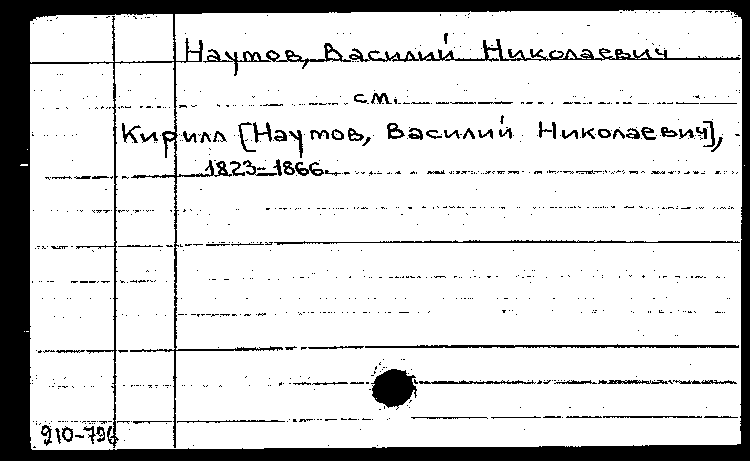 Наумов, Василий Николаевич
см.
Кирилл [Наумов, Василий Николаевич],
1823-1866.
910-796